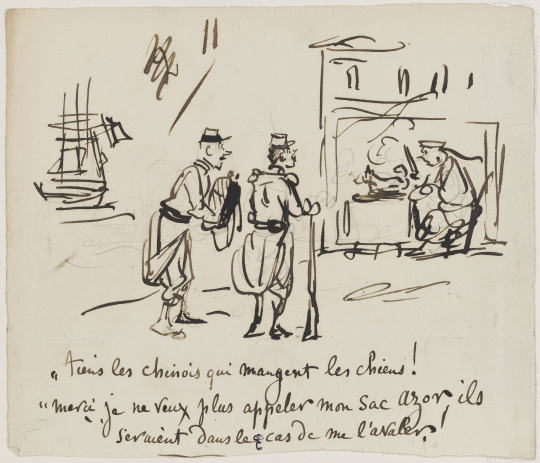 „ tiens les chinois qui mangent les chiens !
“ merci je ne veux plus appeler mon sac azor, ils
seraient dans le cas de me l'avaler !